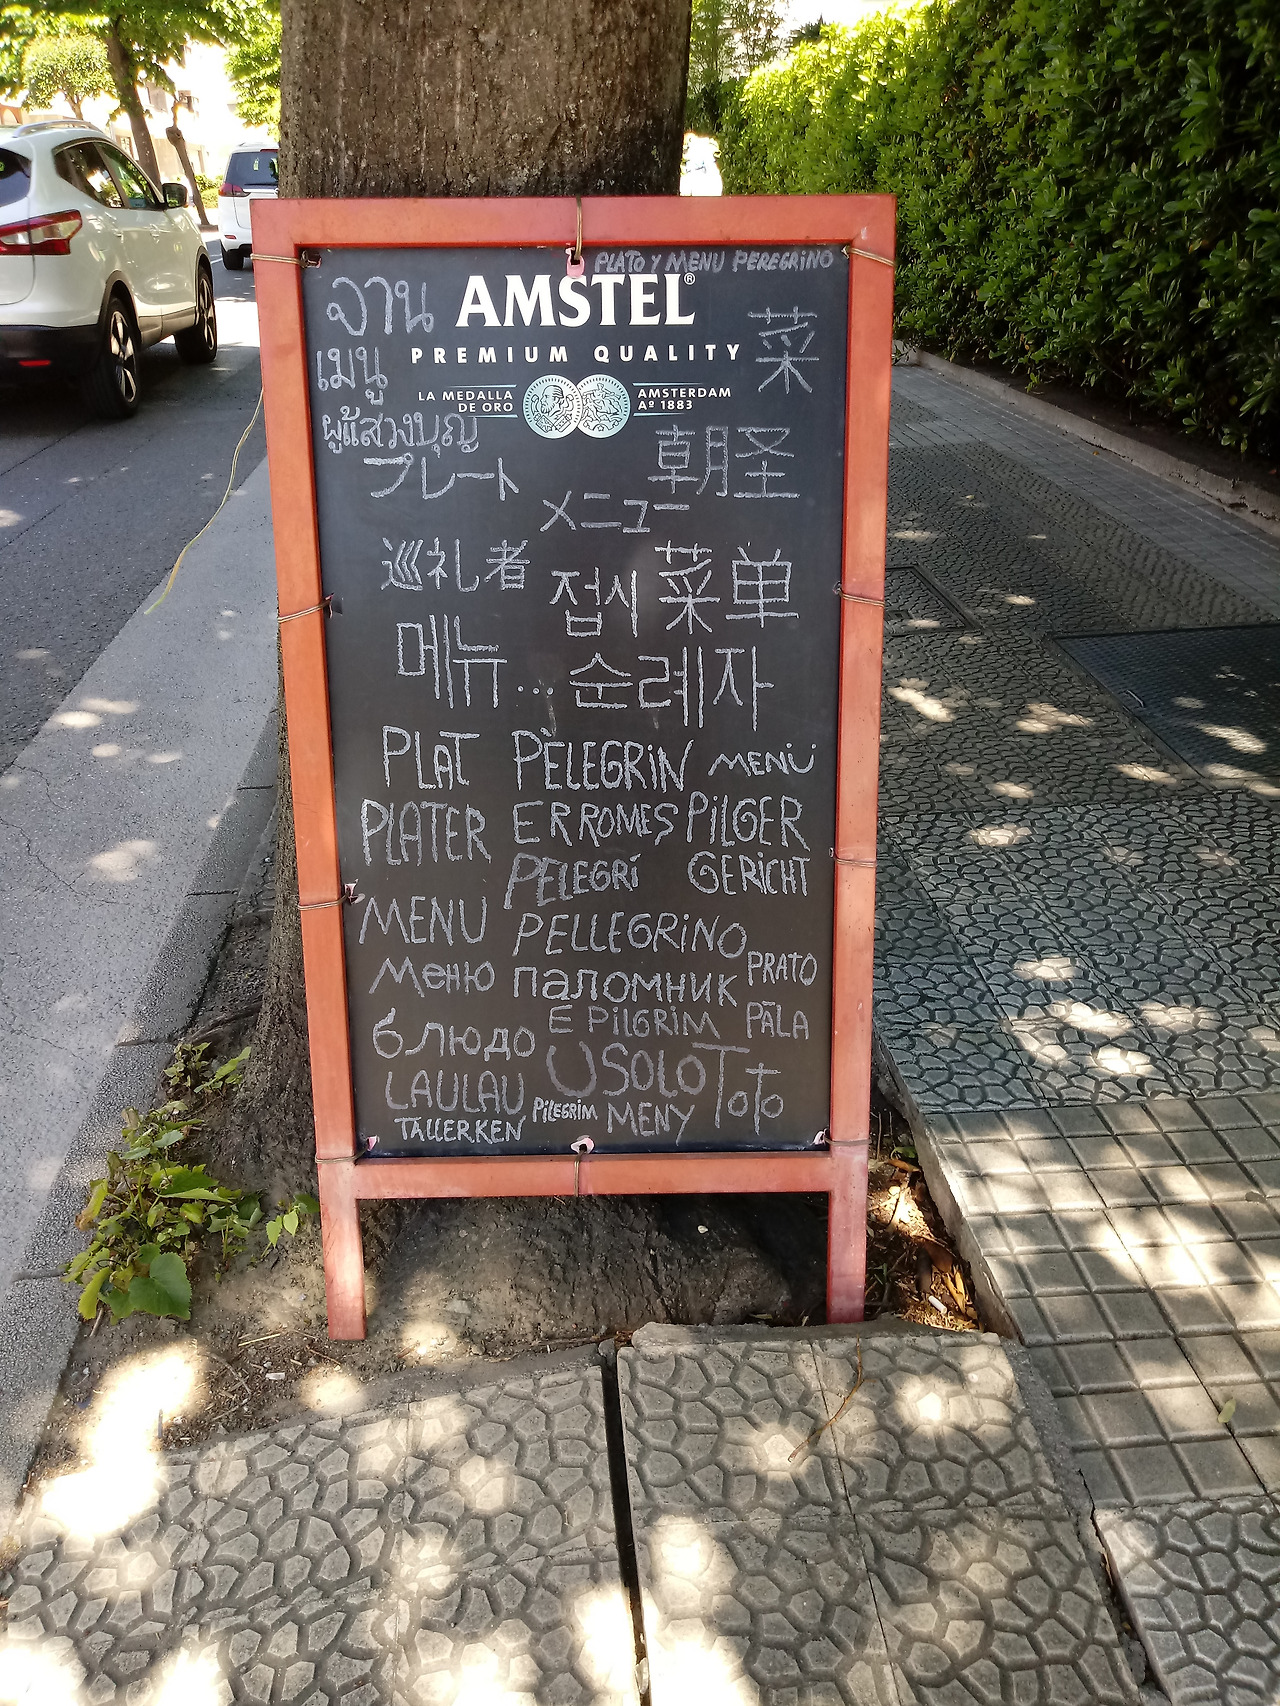 PLATO Y MENU PEREGRINO
จาน AMSTEL® 菜
เมนู PREMIUM QUALITY
LA MEDALLA DE ORO AMSTERDAM Aº 1883
ผู้แสวงบุญ 朝圣
プレート
メニュー
巡礼者 접시 菜单
메뉴 ... 순례자
PLAT PÈLEGRIN MENÚ
PLATER ERROMES PILGER
PELEGRÍ GERICHT
MENU PELLEGRINO
Меню паломник PRATO
блюдо E PILGRIM PĀLA
LAULAU USOLO TOTO
TALLERKEN PILEGRIM MENY